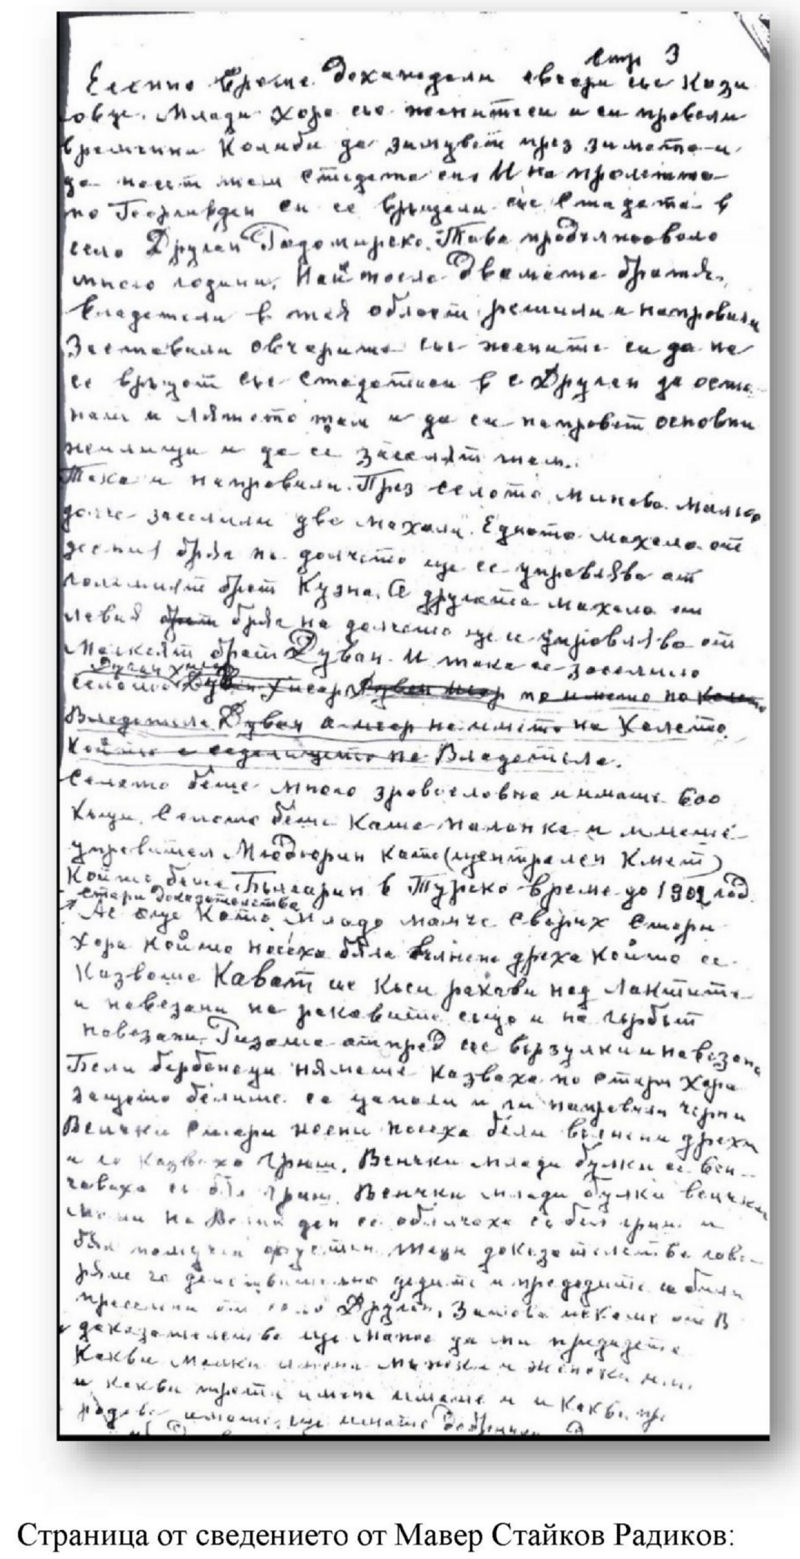 стр 3
Есенно време дохаждали овчари със кози
овце. Млади хора със жените си и си правели
временни колиби да зимуват през зимата и
да пасат там стадата си И на пролетта
по Георгивден си се връщали със стадата в
село Друган Радомирско. Това продължавало
много години. Най после двамата братя,
владетели в тая област решили и направили
Заставили овчарите със жените си да не
се връщат със стадата си в с. Друган да оста-
нат и лятото там и да си направят основни
жилища и да се заселят там.
Така и направили. През селото минава малко
долче заселили две махали. Едната махала от
десния бряг на долчето ще се управлява от
големият брат Кузна. А другата махала от
левия бряг на долчето ще се управлява от
малкият брат Дуван. И така се заселило
селото Дуван Хисар по името на
Владетеля Дуван а хисар на името на Калето
Който е седалището на Владетеля.
Селото беше много здравословно и имаше 600
къщи. Селото беше Каше паланка и имаше
управител Мюдюрин като (централен Кмет)
Който беше Българин в Турско време до 19 год.
Стари доказателства
Аз още като младо момче сварих стари
хора който носеха бяла вълнена дреха който се
казваше Кават със къси ръкави над лактите
и навезани на ръкавите също и на гърбът
навезани. Ризата отпред със вързулки и навезана
Бели бърбенеци нямаше казваха по стари хора
защото белите се цапали и ги направили черни
Всички стари жени носеха бели вълнени дрехи
и го казваха гриш. Всички млади булки се вен-
чаваха с бял гриш. Всички млади булки всички
моми на Велик ден се обличаха с бял гриш и
бял памучен фустан. Тези доказателства гово-
ряме че действително дедите и прадедите са били
преселени от село Друган. Затова искаме от В
доказателства ще може да ми предадете
Какви малки имена мъжки и женски
и какви прости имена имаше и какви пре
родове имаше
Страница от сведението от Мавер Стайков Радиков: